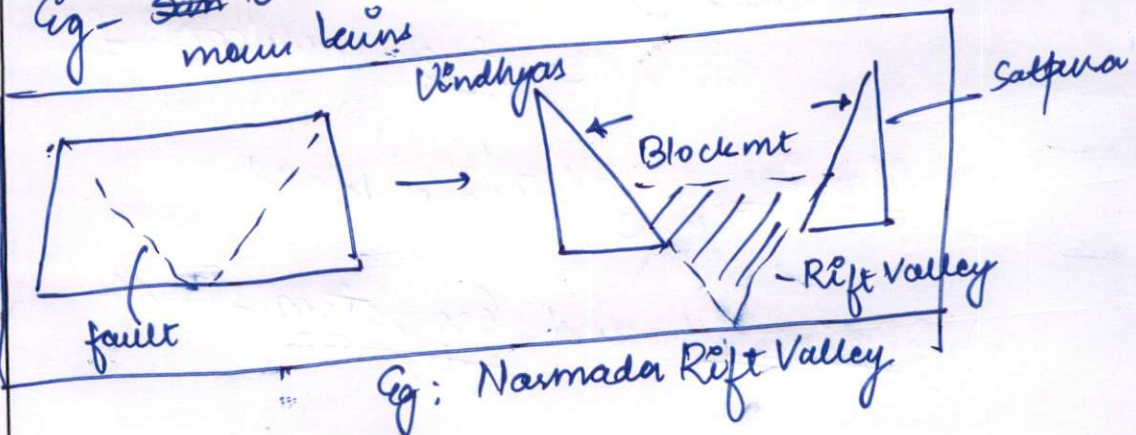 Eg-
mountains
Vindhyas
Satpura
Block mt
Rift Valley
fault
Eg: Narmada Rift Valley